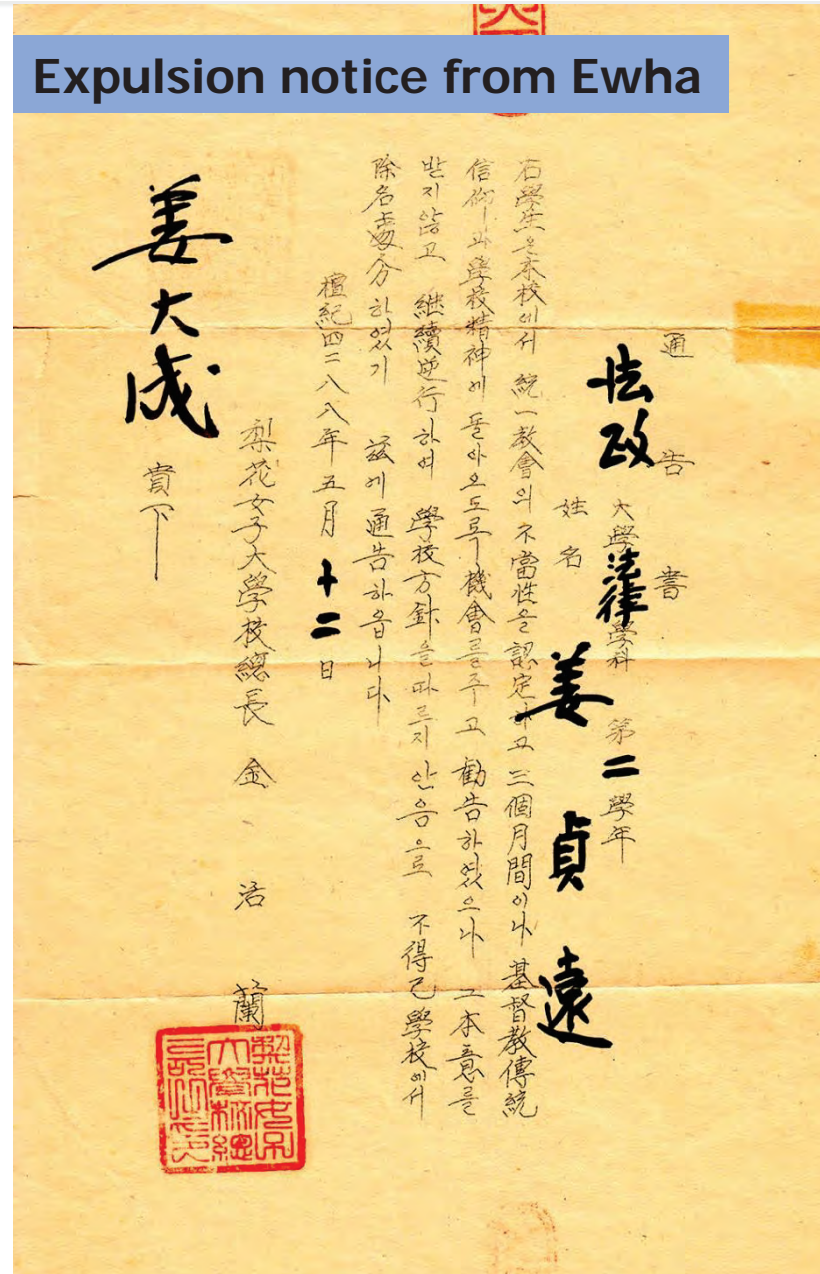 Expulsion notice from Ewha
通告書
法政大學法律學科 第二學年
姓名 姜貞遠
右學生은本校에서 統一教會의 不當性을 認定하고 三個月間이나 基督教傳統
信仰과學校精神에 돌아오도록 機會를주고 勸告하였으나 그本意를
받지않고 継續逆行하여 學校方針을따르지안음으로 不得已學校에서
除名處分하였기 玆에通告하읍니다
檀紀四二八八年五月十二日
梨花女子大學校總長 金活蘭
姜大成 貴下